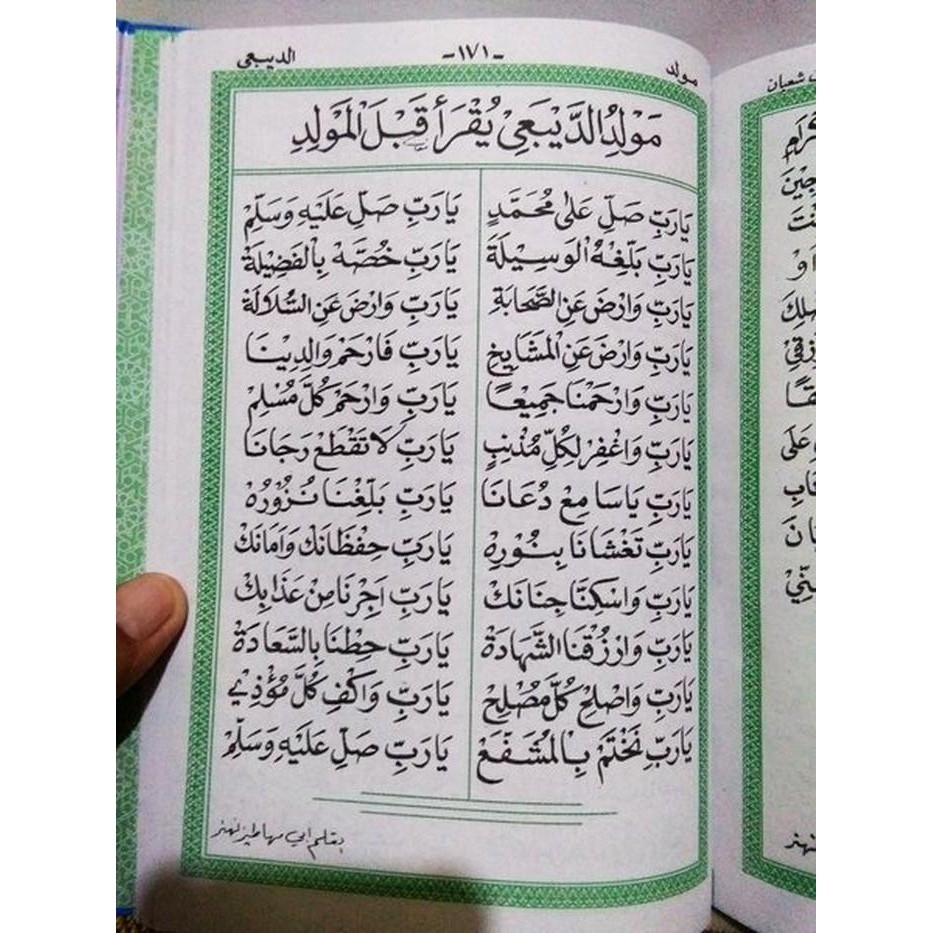 مولد -١٧١- الديبعى
مَوْلِدُ الدَّيْبَعِىْ يُقْرَأُ قَبْلَ الْمَوْلِدِ
يَارَبِّ صَلِّ عَلٰى مُحَمَّدٍ يَارَبِّ صَلِّ عَلَيْهِ وَسَلِّمْ
يَارَبِّ بَلِّغْهُ الْوَسِيْلَةَ يَارَبِّ خُصَّهْ بِالْفَضِيْلَةْ
يَارَبِّ وَارْضَ عَنِ الصَّحَابَةِ يَارَبِّ وَارْضَ عَنِ السُّلَالَةْ
يَارَبِّ وَارْضَ عَنِ الْمَشَايِخِ يَارَبِّ فَارْحَمْ وَالِدِيْنَا
يَارَبِّ وَارْحَمْنَا جَمِيْعًا يَارَبِّ وَارْحَمْ كُلَّ مُسْلِمْ
يَارَبِّ وَاغْفِرْ لِكُلِّ مُذْنِبٍ يَارَبِّ لَا تَقْطَعْ رَجَانَا
يَارَبِّ يَاسَامِعْ دُعَانَا يَارَبِّ بَلِّغْنَا نَزُوْرُهْ
يَارَبِّ تَغْشَانَا بِنُوْرِهْ يَارَبِّ حِفْظَانَكْ وَاَمَانَكْ
يَارَبِّ وَاسْكِنَّا جِنَانَكْ يَارَبِّ اَجِرْنَا مِنْ عَذَابِكْ
يَارَبِّ وَارْزُقْنَا الشَّهَادَةْ يَارَبِّ حِطْنَا بِالسَّعَادَةْ
يَارَبِّ وَاصْلِحْ كُلَّ مُصْلِحْ يَارَبِّ وَاكْفِ كُلَّ مُؤْذِيْ
يَارَبِّ نَخْتَمْ بِالْمُشَفَّعْ يَارَبِّ صَلِّ عَلَيْهِ وَسَلِّمْ
بقلم ابي
شعبان